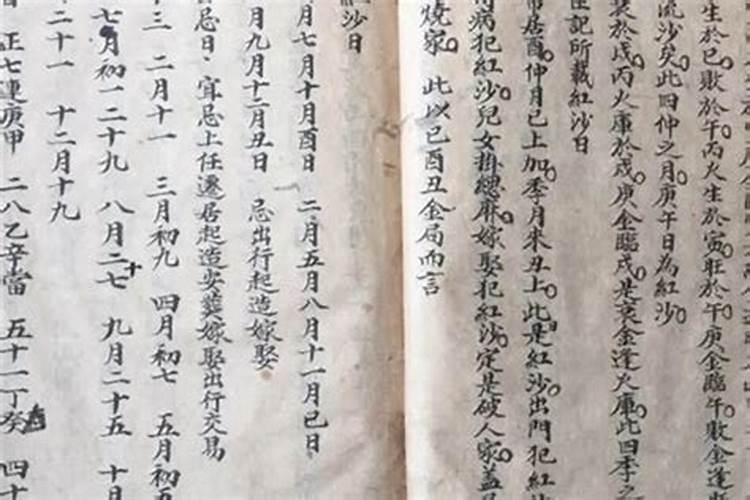 生於巳敗於午丙火生於寅旺於午庚金臨午敗金逢
流沙矣此四仲之月庚午日為紅沙
於戌丙火庫於戌庚金臨戌是衰金逢火庫此四季之
記所載紅沙日
居酉仲月已上加季月來丑上此是紅沙出門犯紅
病犯紅沙兒女掛總麻嫁娶犯紅沙定是破人家蓋
燒家 此以巳酉丑金局而言
紅沙日
月七月十月酉日 二月五月八月十一月巳日
月九月十二月丑日 忌出行起造嫁娶
忌日 宜忌上任遷居起造安葬嫁娶出行交易
三 二月十一 三月初九 四月初七 五月初五
七月初一二十九 八月二十七 九月二十五 十月
二十一 十二月十九
正七連庚甲 二八乙辛當 五十一丁癸 四十